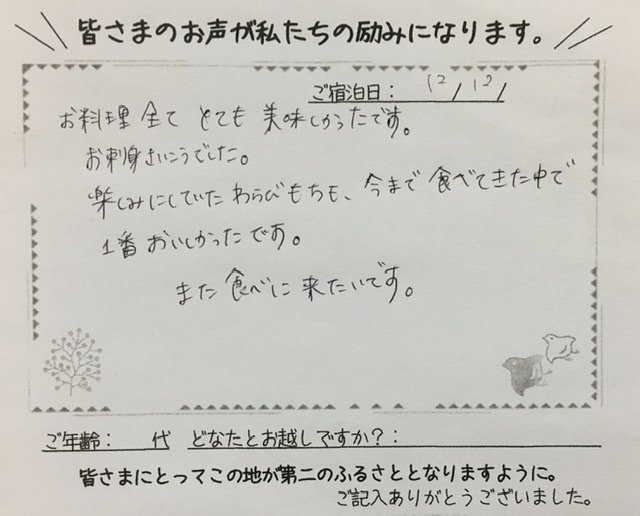 皆さまのお声が私たちの励みになります。
ご宿泊日： 12/12/
お料理全て とても 美味しかったです。
お刺身さいこうでした。
楽しみにしていた わらびもちも、今まで 食べてきた中で
1番 おいしかったです。
また 食べに 来たいです。
ご年齢： 代 どなたとお越しですか？：
皆さまにとってこの地が第二のふるさととなりますように。
ご記入ありがとうございました。